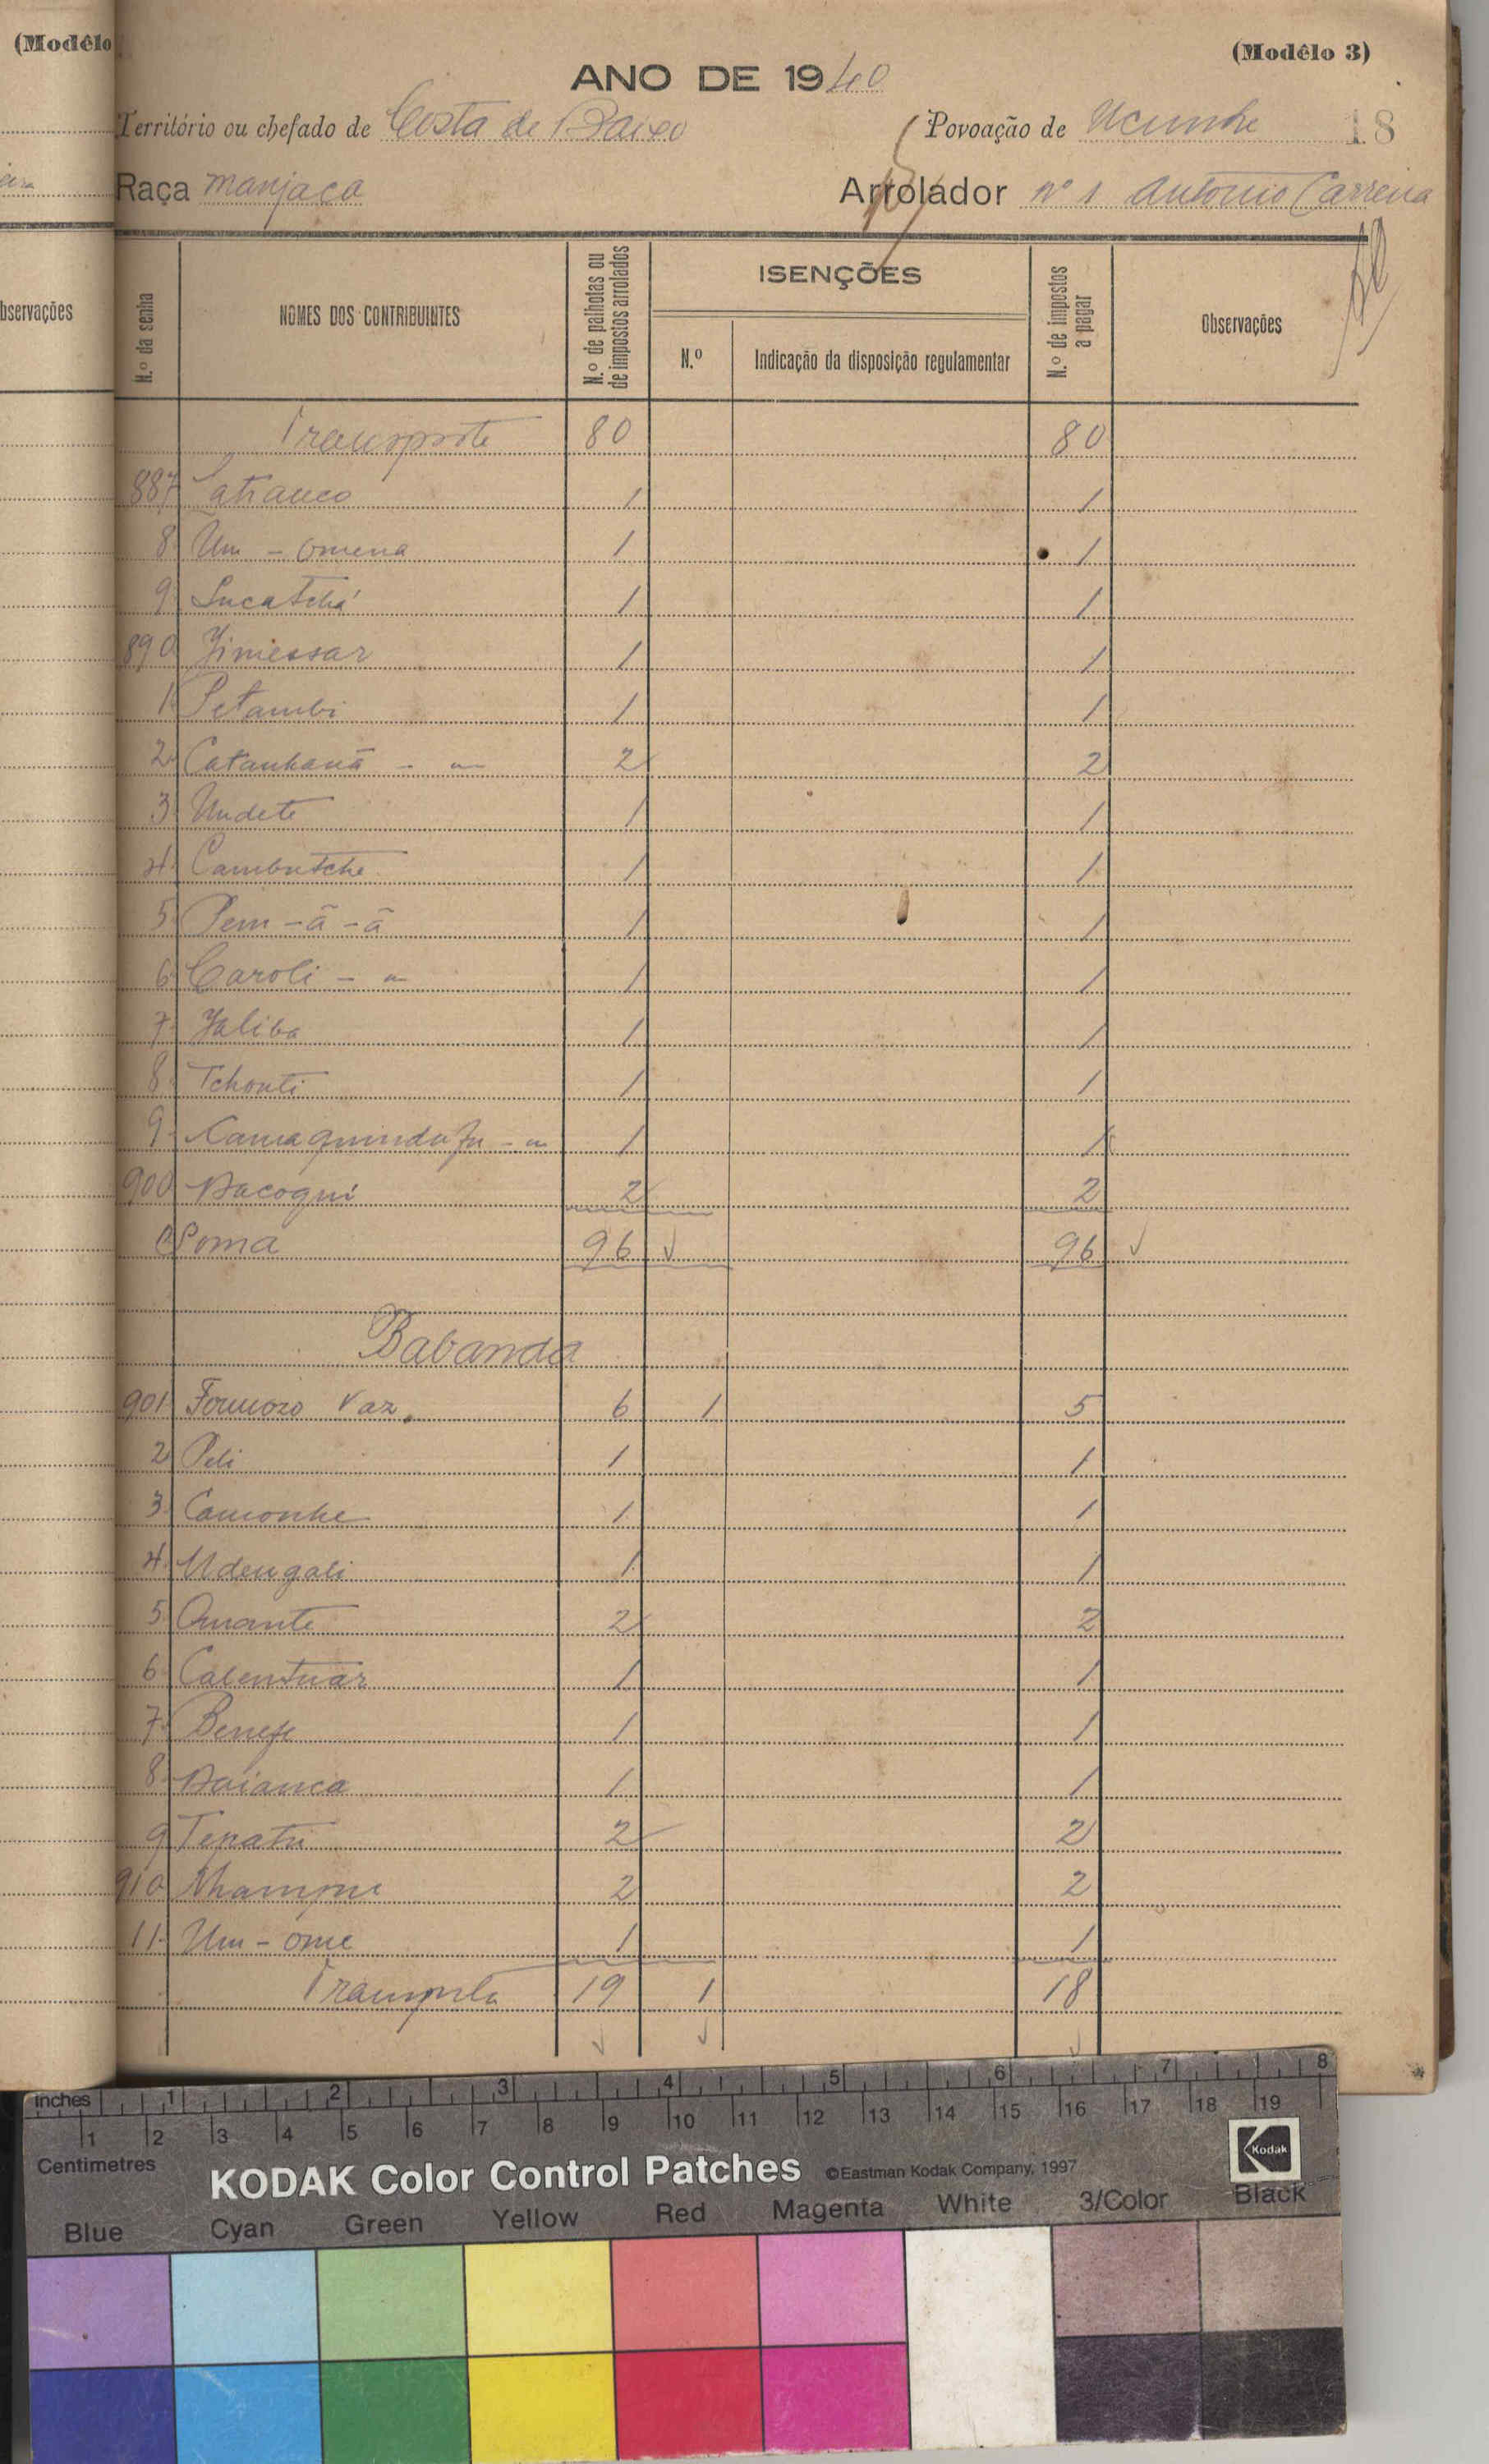 (Modêlo
(Modêlo 3)
ANO DE 1940
Território ou chefado de Costa de Baixo Povoação de Ucunhe 18
Raça manjaca Arrolador nº 1 Antonio Carreira
bservações
N.º da senha NOMES DOS CONTRIBUINTES N.º de palhotas ou de impostos arrolados ISENÇÕES N.º Indicação da disposição regulamentar N.º de impostos a pagar Observações
Transporte 80 80
887 Catranco 1 1
8 Um - omena 1 1
9 Lucatchá 1 1
890 Jimessar 1 1
1 Petambi 1 1
2 Catanhanã - 2 2
3 Undete 1 1
4 Cambutche 1 1
5 Pem - ã - ã 1 1
6 Caroli - 1 1
7 Jaliba 1 1
8 Tchonti 1 1
9 1 1
900 Dacogui 2 2
Soma 96 96
Babanda
901 Formozo Vaz 6 1 5
2 Peli 1 1
3 Camonhe 1 1
4 Udengali 1 1
5 Quante 2 2
6 Calentuar 1 1
7 1 1
8 Daianca 1 1
9 Tepatu 2 2
910 2 2
11 Um - ome 1 1
Transporta 19 1 18
inches 1 2 3 4 5 6 7 8
1 2 3 4 5 6 7 8 9 10 11 12 13 14 15 16 17 18 19
Centimetres
KODAK Color Control Patches ©Eastman Kodak Company, 1997 Kodak
Blue Cyan Green Yellow Red Magenta White 3/Color Black